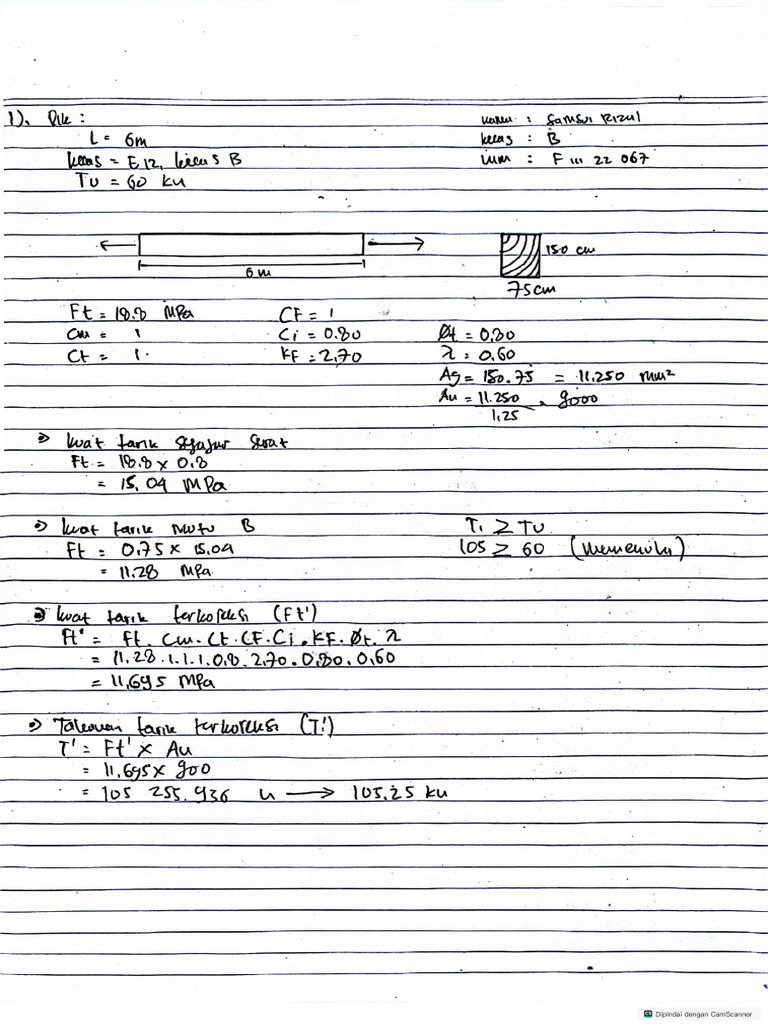 1). Dik :
L = 6m
kelas = E12, kelas B
Tu = 60 kN
Nama : Samsul Rizal
kelas : B
NIM : F 111 22 067
6 m
150 cm
75 cm
Ft = 18.8 MPa
CF = 1
Cm = 1
Ci = 0.80
Øt = 0,80
Ct = 1.
KF = 2,70
λ = 0,60
Ag = 150.75 = 11.250 mm²
An = 11.250 / 1,25 = 9000
=> kuat tarik sejajar serat
Ft = 18.8 x 0.8
= 15,04 MPa
=> kuat tarik mutu B
Ft = 0,75 x 15.04
= 11.28 MPa
T' ≥ Tu
105 ≥ 60 (memenuhi)
=> kuat tarik terkoreksi (Ft')
Ft' = Ft . Cm . Ct . CF . Ci . KF . Øt . λ
= 11.28 . 1 . 1 . 1 . 0,8 . 2,70 . 0,80 . 0,60
= 11,695 MPa
=> Tahanan tarik terkoreksi (T')
T' = Ft' x An
= 11.695 x 900
= 105 255.936 N → 105.25 kN
Dipindai dengan CamScanner